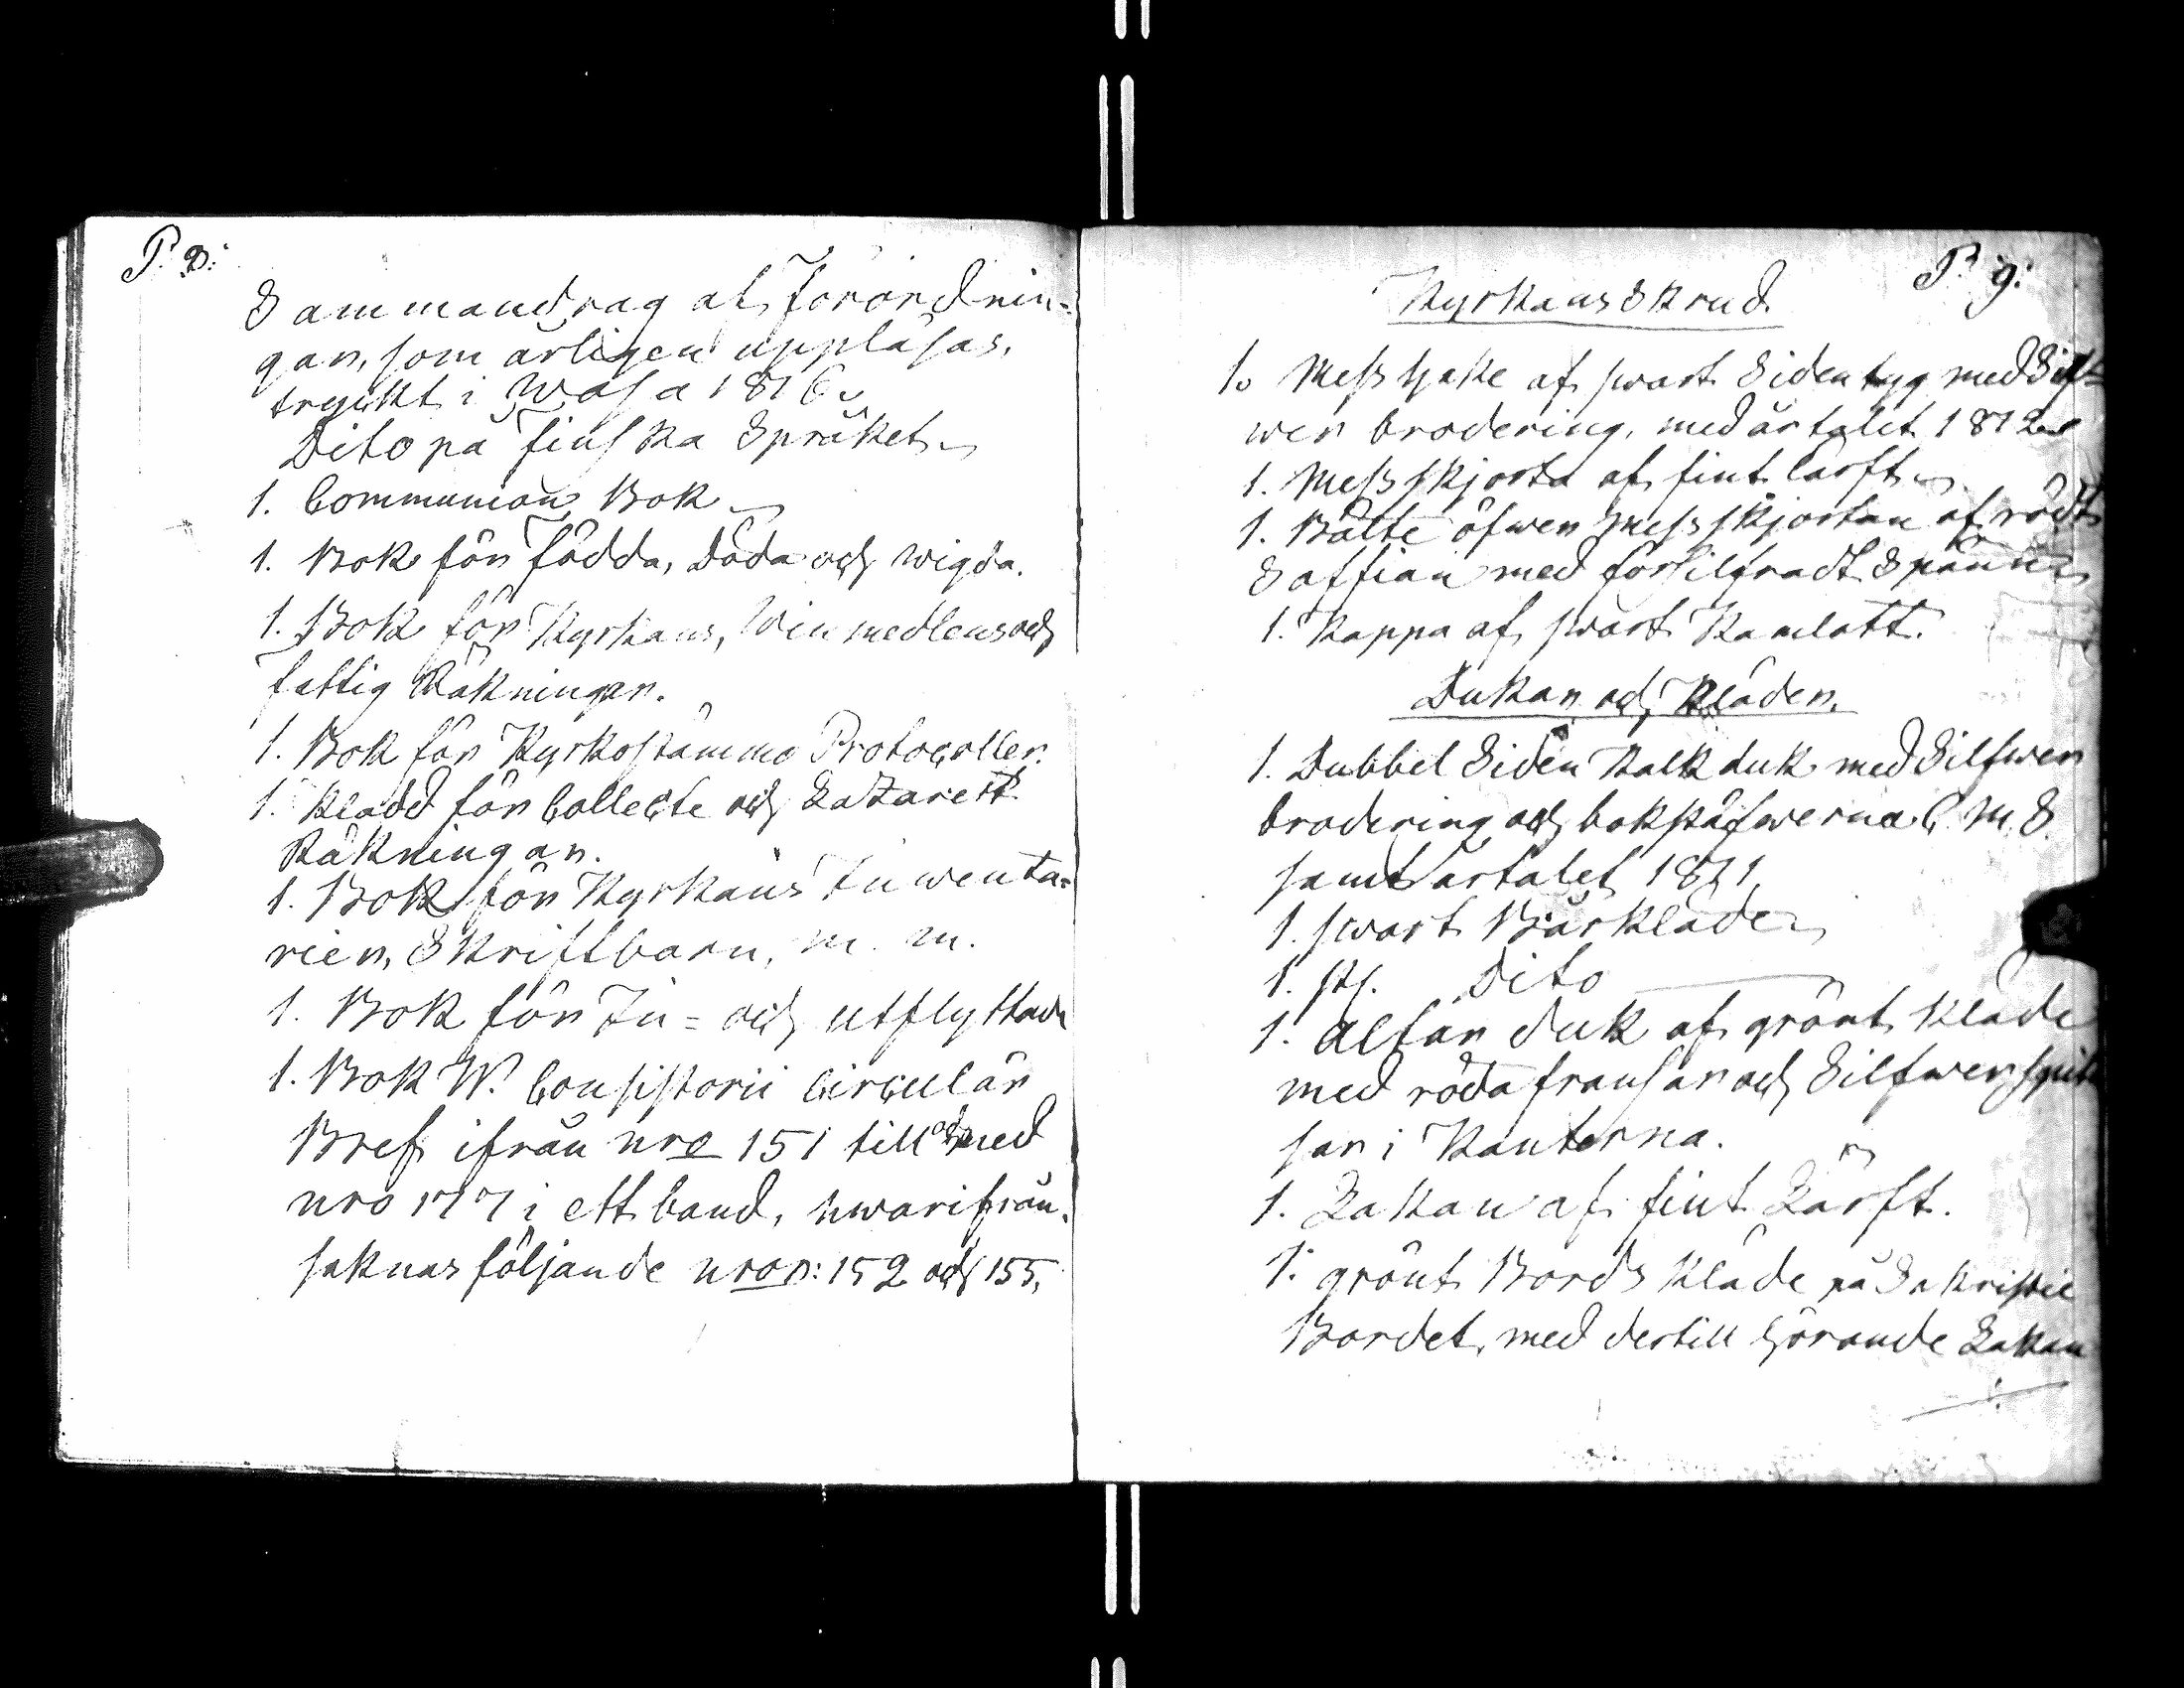 P. 8:
Sammandrag af Förordnin-
gar, som årligen uppläsas,
tryckt i Wasa 1816.
Dito på finska Språket
1. Communion Bok
1. Bok för födda, Döda och wigda.
1. Bok för Kyrkans, Winmedlens och
fattig Räkningar.
1. Bok för Kyrkostämmo Protocoller.
1. Kladd för Collecte och Lazarett
Räkningar.
1. Bok för Kyrkans Inwenta-
rier, Skriftbarn, m. m.
1. Bok för In- och utflyttade
1. Bok W. Consistorii Circulär
Bref ifrån nro 151 till och med
nro 177 i ett band, hwarifrån
saknas följande nror: 152 och 155.
P. 9:
Kyrkans Skrud.
1. Messhake af swart Sidentyg med Silf-
wer brodering, med årtalet 1812
1. Messskjorta af fint Lärft
1. Bälte öfwer Messskjortan af rödt
Saffian med försilfradt Spänne
1. Kappa af swart Kamlott.
Dukar och Kläden.
1. Dubbel Siden Kalkduk med Silfwer
brodering och bokstäfwerna C. M. S.
samt årtalet 1811
1. swart Bårkläde
1. st. Dito
1. Altar duk af grönt Kläde
med röda fransar och Silfwer spit
sar i Kanterna.
1. Lakan af fint Lärft.
1. grönt Bords Kläde på Sakristie
Bordet, med dertill hörande Lakan